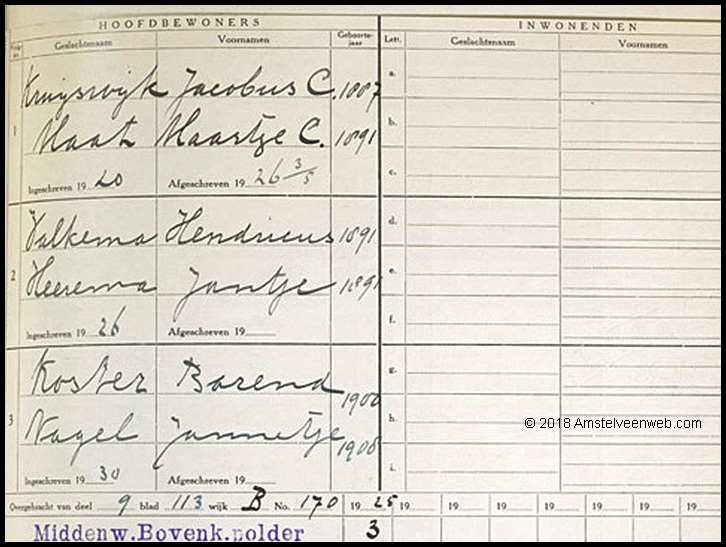 HOOFDBEWONERS INWONENDEN
Volg- nr. Geslachtsnaam Voornamen Geboorte- jaar Lett. Geslachtsnaam Voornamen
a.
Kruyswyk Jacobus C. 1887
1 Maat Maartje C. 1891 b.
c.
Ingeschreven 19 20 Afgeschreven 19 26 3/5
Valkema Hendricus 1891 d.
2 Heerema Jantje 1891 e.
f.
Ingeschreven 19 26 Afgeschreven 19
Koster Barend g.
3 Nagel Jannetje 1908 h.
Ingeschreven 19 30 Afgeschreven 19 i.
© 2018 Amstelveenweb.com
Overgebracht van deel 9 blad 113 wijk B No. 170 19 25 19 19 19 19 19 19 19
Middenw. Bovenk. polder 3